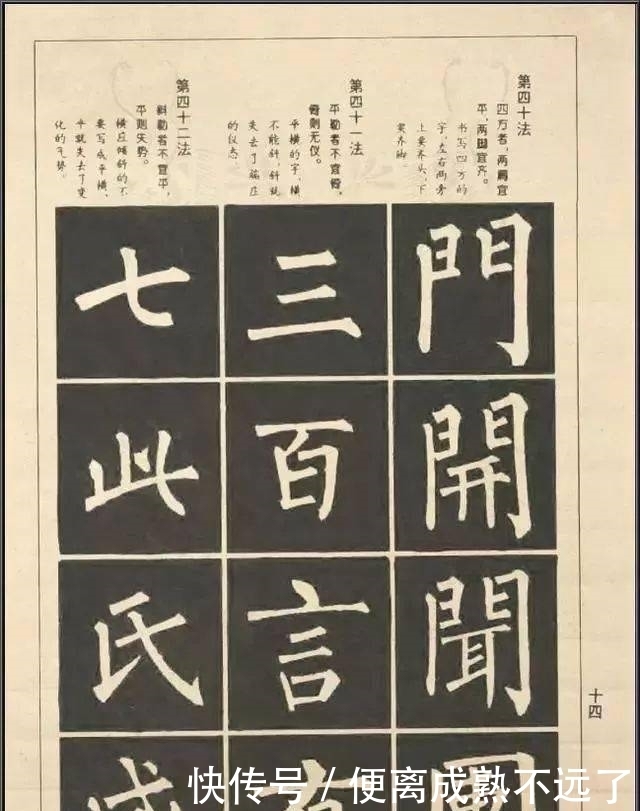 第四十法
四方者,两肩宜
平,两脚宜齐。
书写四方的
字,左右两旁
上要齐头,下
要齐脚。
門
開
聞
第四十一法
平勒者不宜
则无仪。
平横的字,横
不能斜,斜就
失去了端庄
的仪态
三
百
言
第四十二法
斜勒者不宜平,
平则失势。
横应倾斜的不
要写成平横,
平就失去了变
化的气势。
七
此
氏
十四
快传号/便离成熟不远了